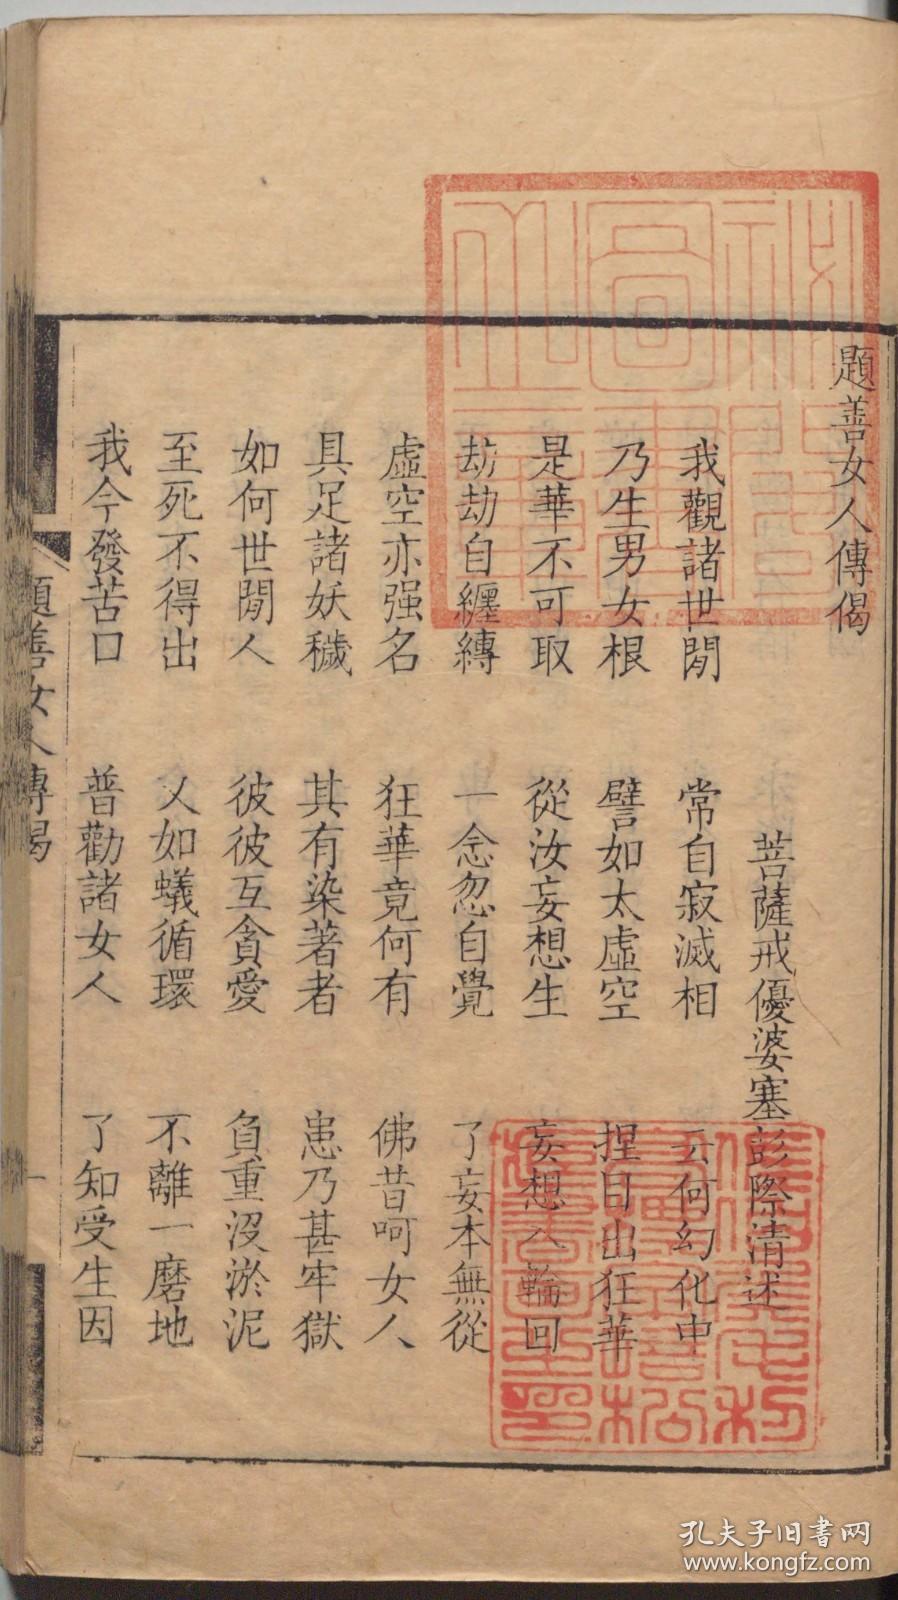 題善女人傳偈
菩薩戒優婆塞彭際清述
我觀諸世間　常自寂滅相　云何幻化中
乃生男女根　譬如太虛空　捏目出狂華
是華不可取　從汝妄想生　妄想入輪回
劫劫自纏縛　一念忽自覺　了妄本無從
虛空亦强名　狂華竟何有　佛昔呵女人
具足諸妖穢　其有染著者　患乃甚牢獄
如何世閒人　彼彼互貪愛　負重沒淤泥
至死不得出　乂如蟻循環　不離一磨地
我今發苦口　普勸諸女人　了知受生因
題善女人傳偈
一
孔夫子旧书网
www.kongfz.com